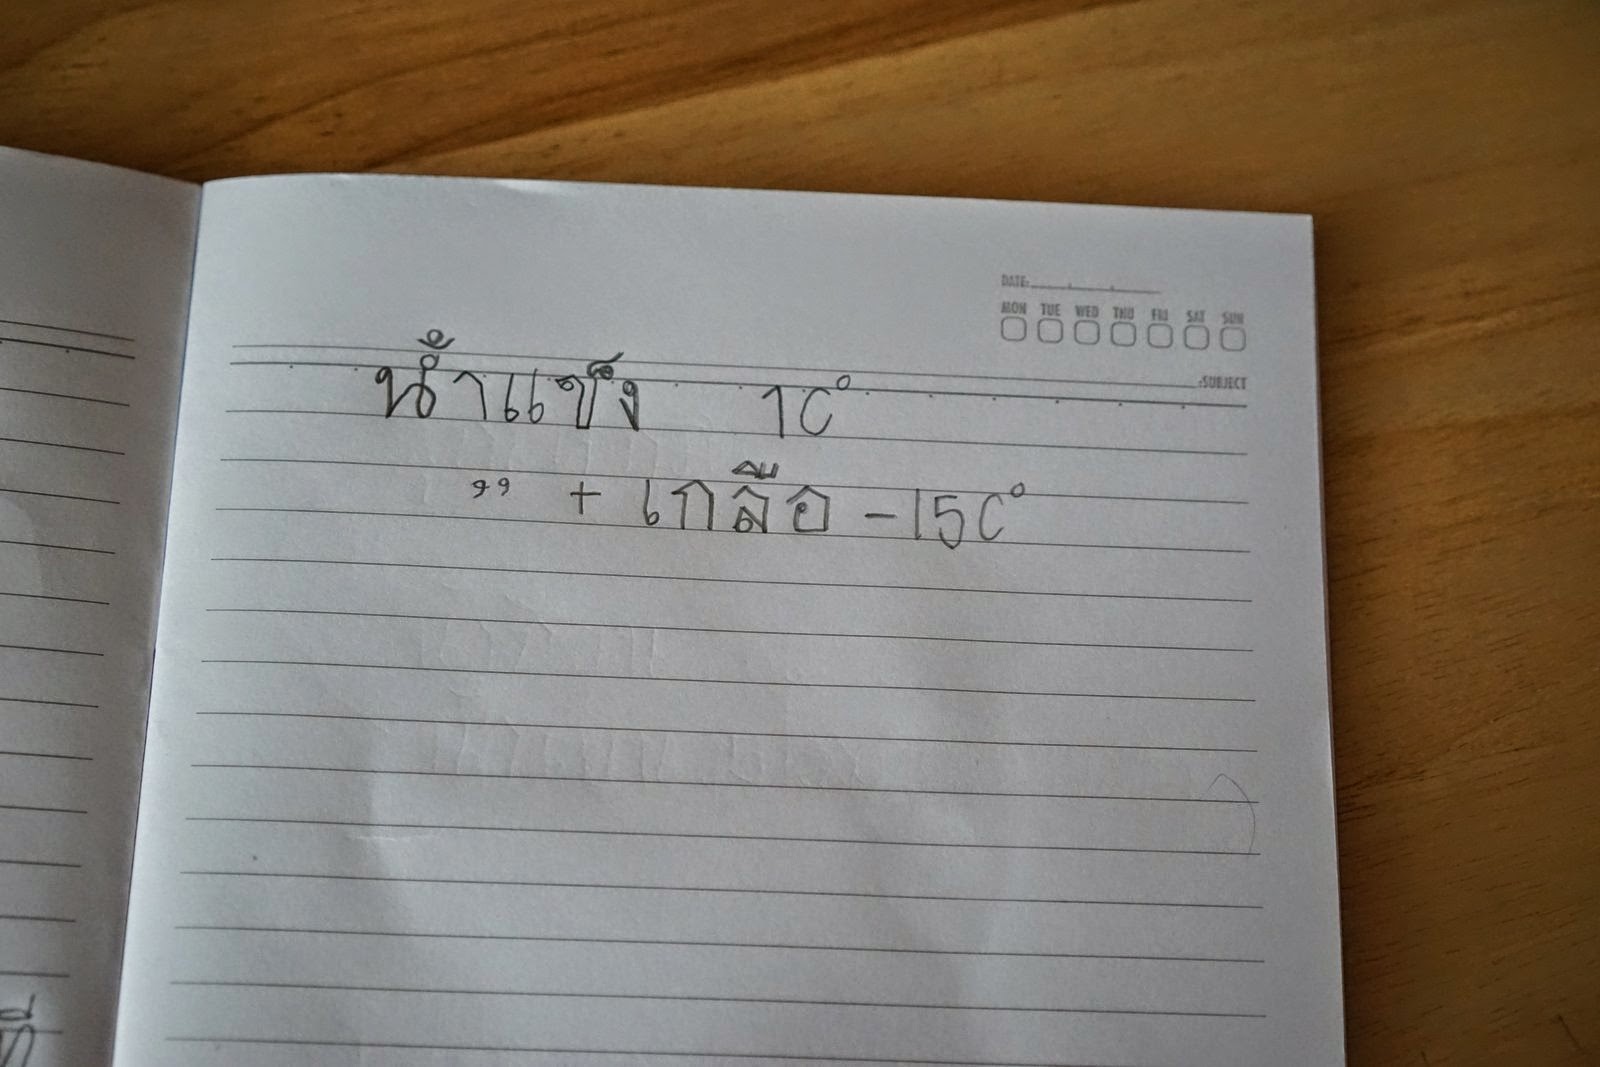 DATE:
MON TUE WED THU FRI SAT SUN
:SUBJECT
น้ำแข็ง 1C°
" + เกลือ -15C°